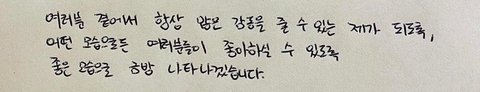 여러분 곁에서 항상 많은 감동을 줄 수 있는 제가 되도록,
어떤 모습으로든 여러분들이 좋아하실 수 있도록
좋은 모습으로 금방 나타나겠습니다.